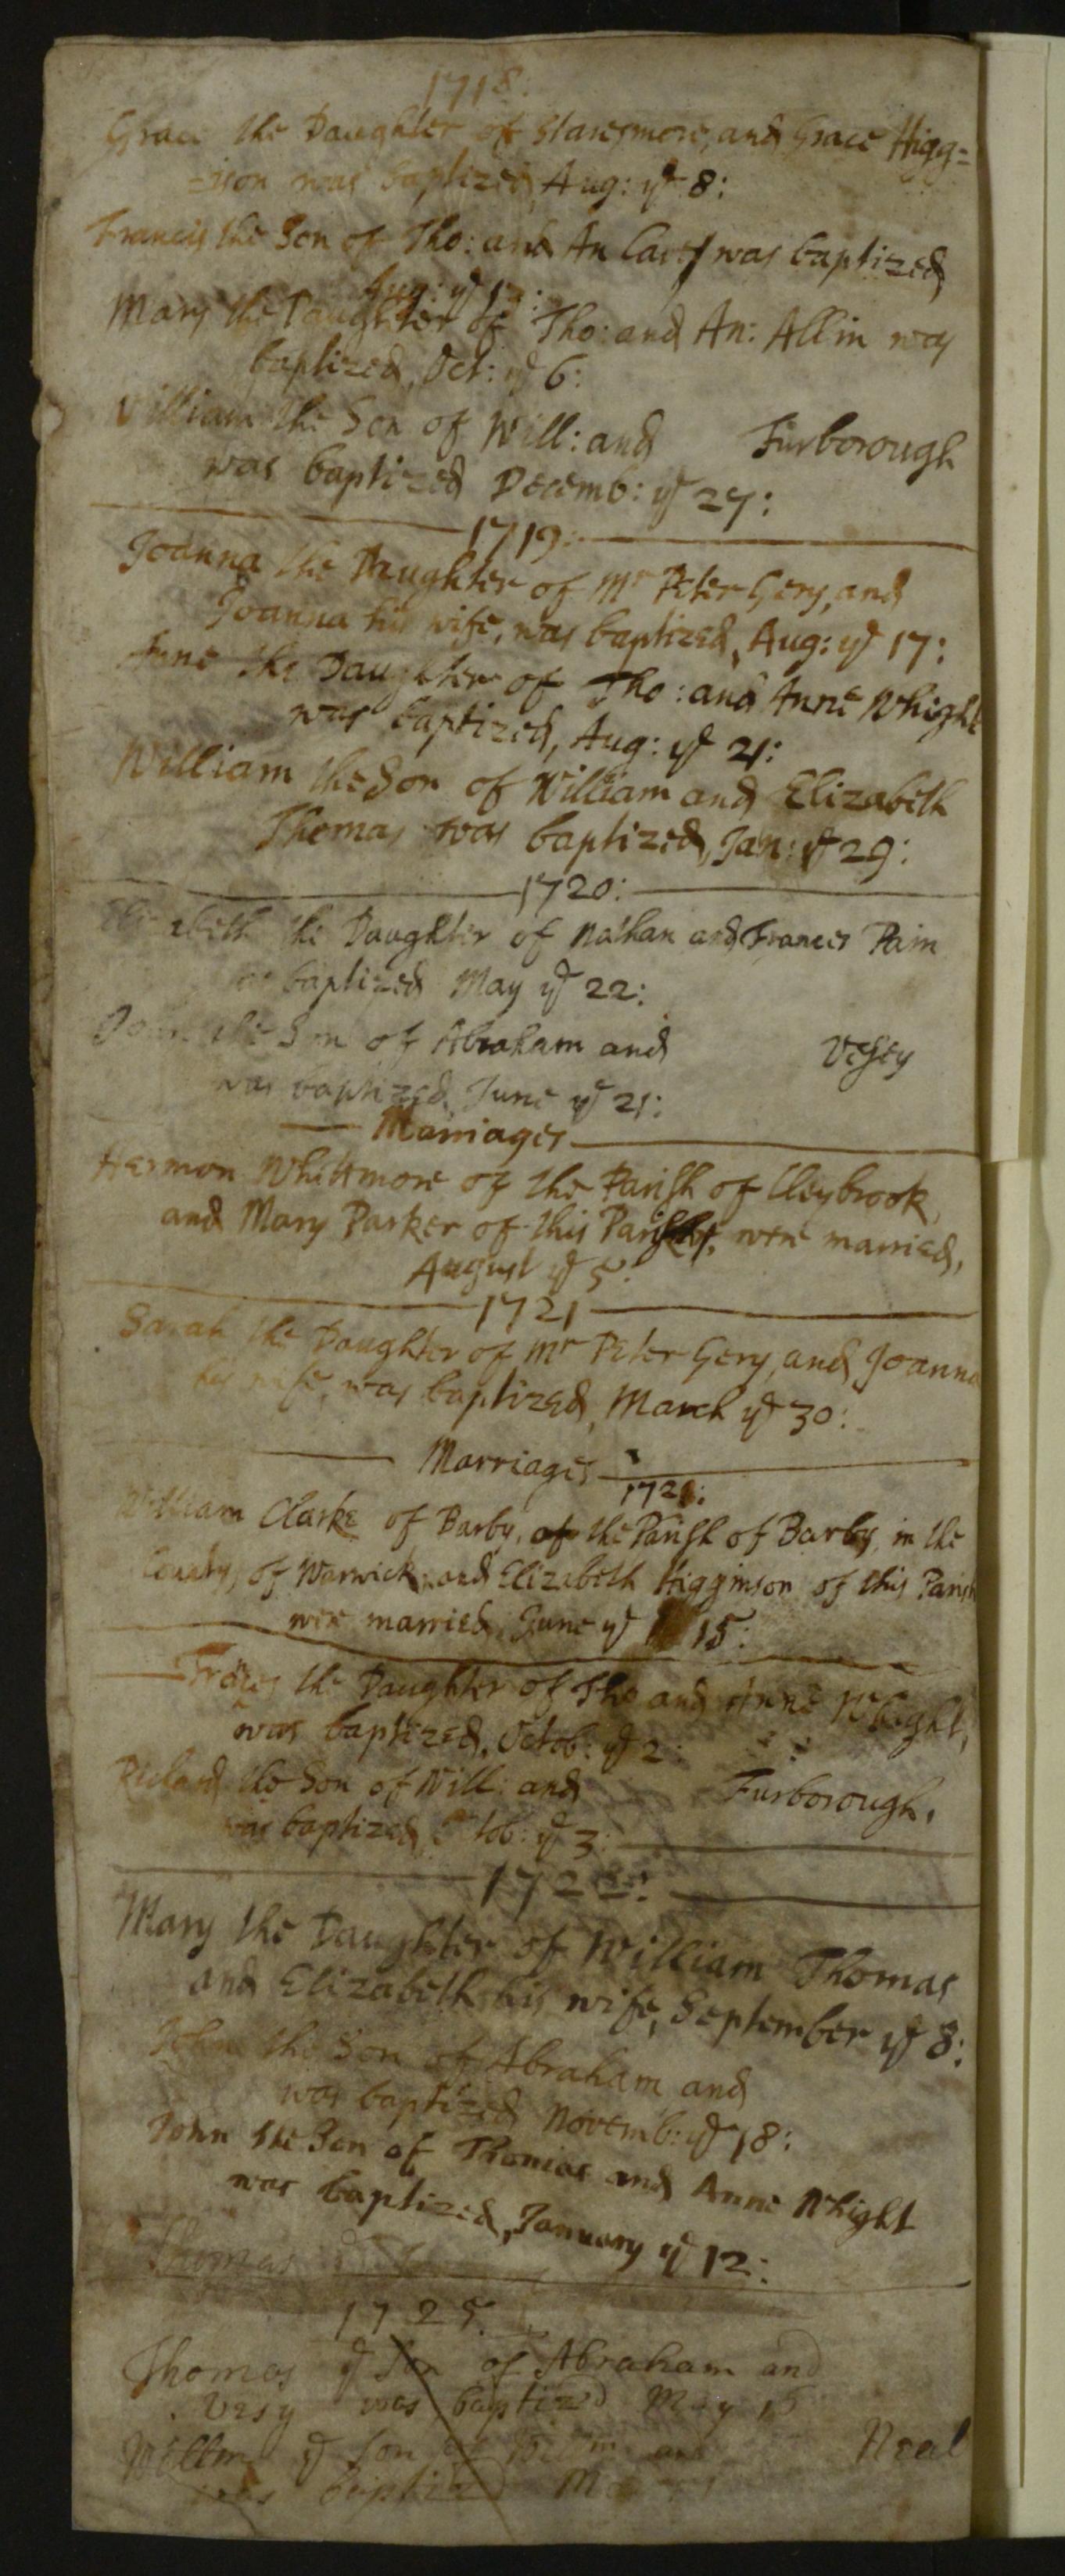 1718:
Grace the Daughter of Staresmore, and Grace Higg=
=ison was baptized, Aug: ye 8:
Francis the Son of Tho: and An was baptized,
Aug: ye
Mary the Daughter of Tho: and An: Allin was
baptized, Oct: ye 6:
William the Son of Will: and Furborough
was baptized Decemb: ye 27:
1719:
Joanna the Daughter of Mr Peter Gery, and
Joanna his wife, was baptized, Aug: ye 17:
Anne the Daughter of Tho: and Anne Whight
was baptized, Aug: ye 21:
William the Son of William and Elizabeth
Thomas was baptized, Jan: ye 29:
1720:
Elizabeth the Daughter of Nathan and Frances Pain
was baptized May ye 22:
the Son of Abraham and Vesey
was baptized June ye 21:
Marriages
Hermon Whittmore of the Parish of Cleybrook,
and Mary Parker of this Parish, were married,
August ye 5:
1721
Sarah the Daughter of Mr Peter Gery, and Joanna
his wife, was baptized, March ye 30:
Marriages
1721:
William Clarke of Barby, of the Parish of Barby, in the
County of Warwick, and Elizabeth Higginson of this Parish
were married, June ye 15:
the Daughter of Tho and Anne Whight,
was baptized, Octob: ye 2:
Richard the Son of Will: and Furborough,
was baptized Octob: ye 3:
1722:
Mary the Daughter of William Thomas
and Elizabeth his wife, September ye 8:
John the Son of Abraham and
was baptized Novemb: ye 18:
John the Son of Thomas and Anne Whight
was baptized, January ye 12:
Thomas
1725.
Thomas ye Son of Abraham and
Vesy was baptized May 15
Willm ye Son of Willm and Neal
was baptized